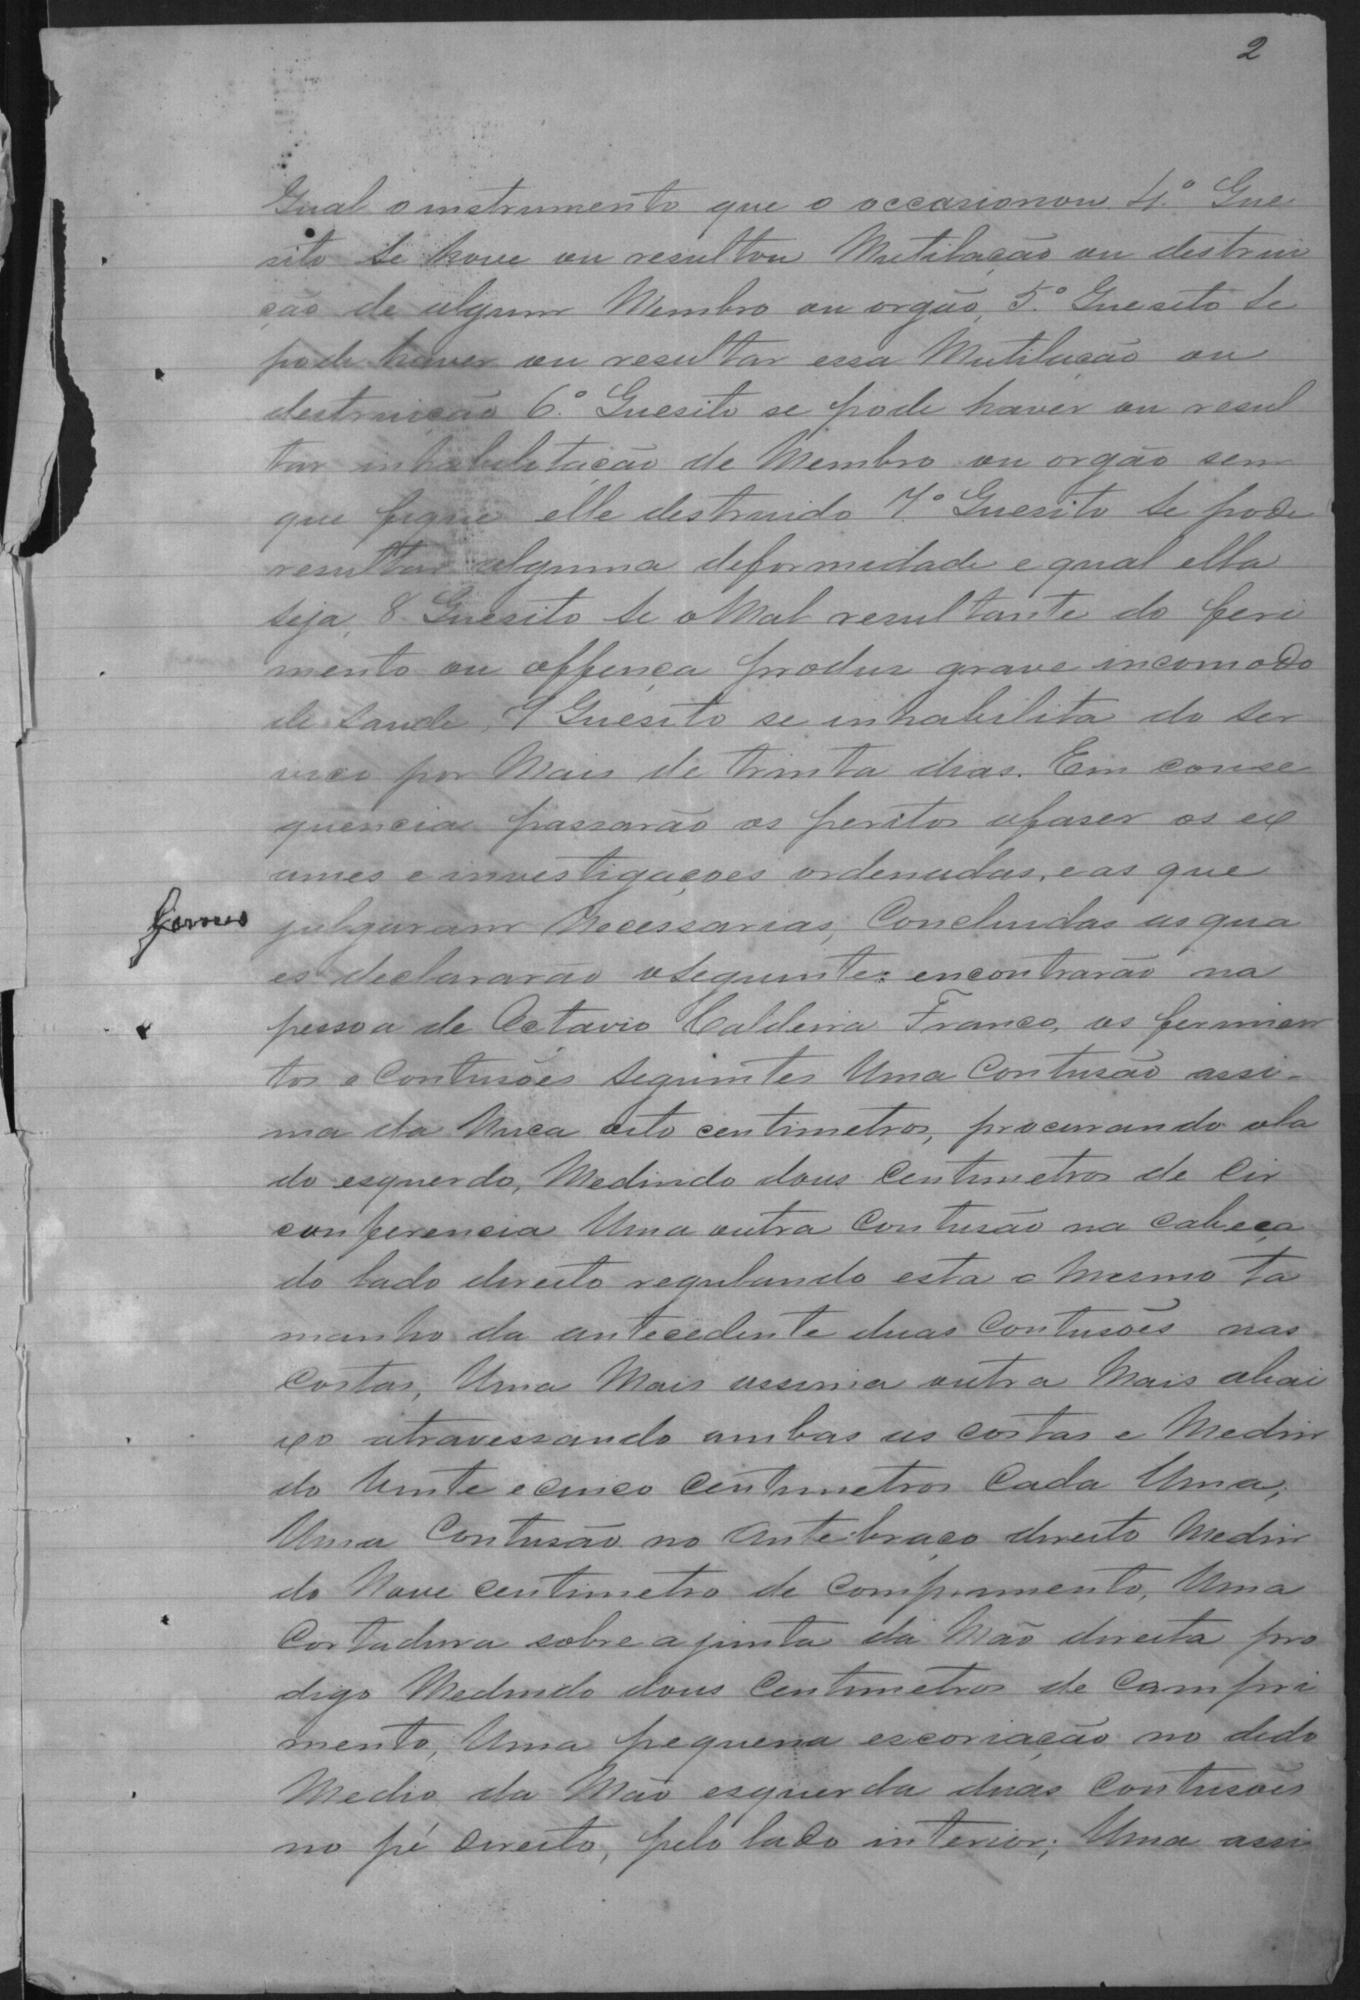 2
Qual o instrumento que o occasionou. 4º Que
sito se hove ou resultou Mutilação ou destrui
ção de algum Membro ou orgão, 5º Quesito se
pode haver ou resultar essa Mutilação ou
destruição 6º Quesito se pode haver ou resul
tar inhabilitação de Membro ou orgão sem
que fique elle destruido 7º Quesito se pode
resultar alguma deformidade e qual ella
seja, 8 Quesito se o Mal resultante do feri
mento ou offença produz grave incomodo
de saude, 9 Quesito se inhabilita do ser
viço por Mais de trinta dias. Em conse
quencia passarão os peritos afaser os ex
ames e investigações ordenadas, e as que
julgaram Necessarias, Concluidas as qua
es declararão oseguinte: encontrarão na
pessoa de Octavio Caldeira Franco, os ferimen
tos e Contusões seguintes Uma Contusão assi-
ma da Nuca oito centimetros, procurando ola
do esquerdo, Medindo dous Centimetros de Cir
conferencia Uma outra Contusão na cabeça
do lado direito regulando esta o Mesmo ta
manho da antecedente duas Contusões nas
Costas, Uma Mais assima outra Mais abai
xo atravessando ambas as costas e Medin
do Vinte e cinco Centimetros Cada Uma,
Uma Contusão no Antebraço direito Medin
do Nove centimetro de comprimento, Uma
Cortadura sobre a junta da Mão direita pro
digo Medindo dous Centimetros de Compri
mento, Uma pequena escoriação no dedo
Medio da Mão esquerda duas Contusões
no pé direito, pelo lado interior; Uma assi